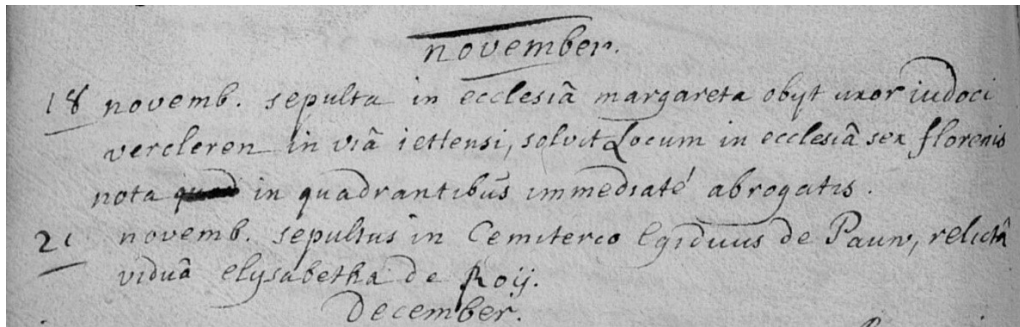 november.
18 novemb. sepulta in ecclesiâ margareta obyt uxor iudoci
vercleren in viâ iettensi, solvit Locum in ecclesiâ sex florenis
nota in quadrantibus immediaté abrogatis.
21 novemb. sepultus in Cemiterco Egidius de Pauw, relictâ
viduâ elysabetha de Roij.
December.